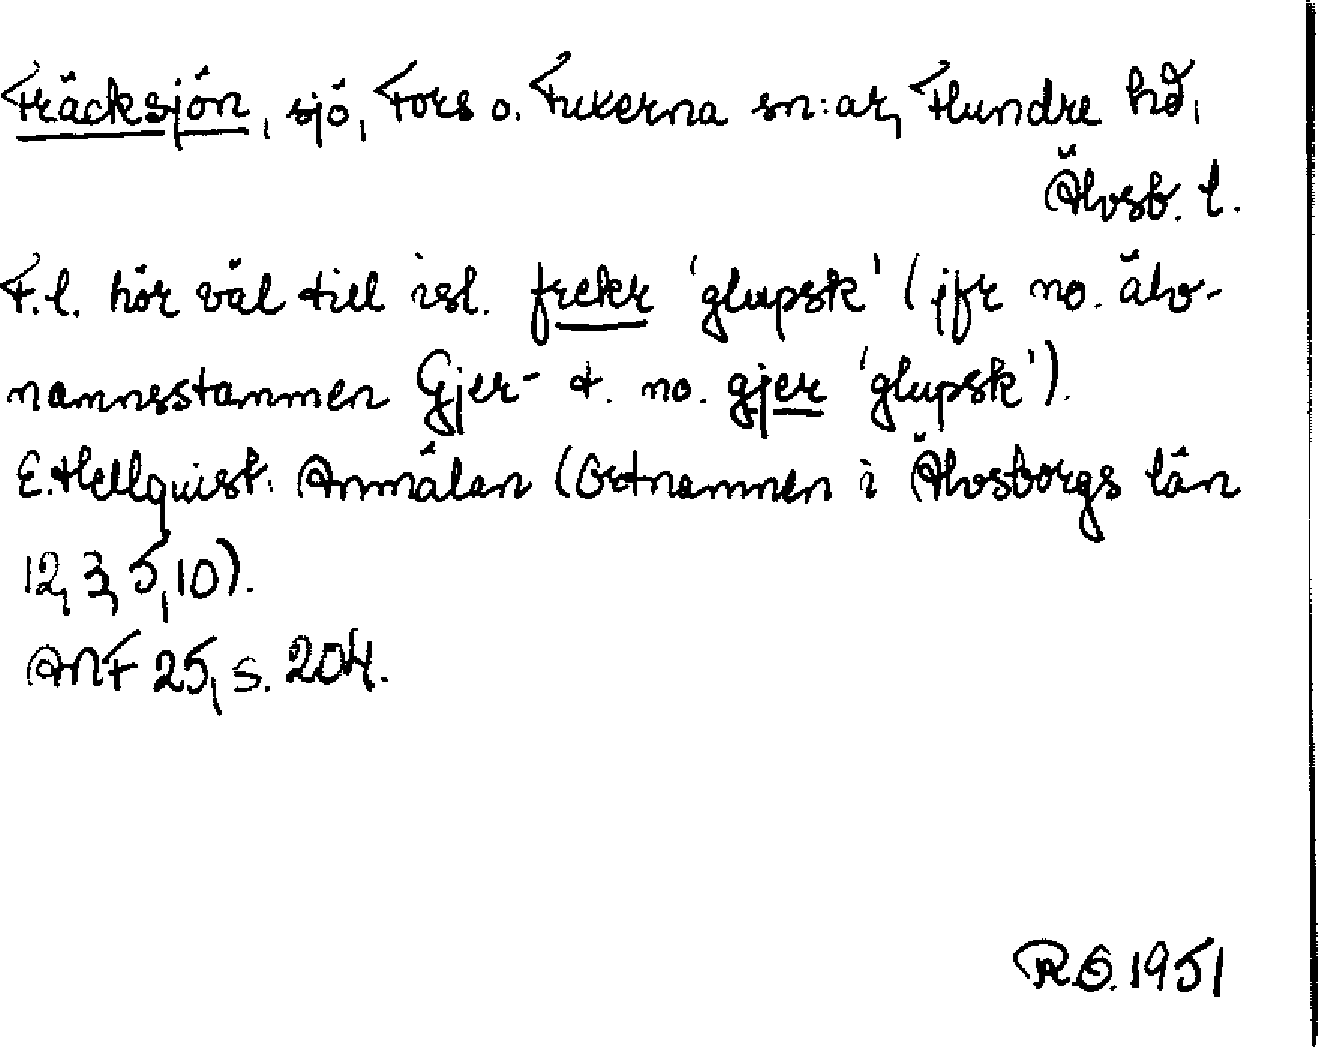 Fräcksjön, sjö, Fors o. Fuxerna sn:ar, Flundre hd,
Älvsb. l.
F.l. hör väl till isl. frekr 'glupsk' (jfr no. älv-
namnsstammen Gjer- t. no. gjer 'glupsk').
E. Hellquist: Anmälan (Ortnamnen i Älvsborgs län
12, 3, 5, 10).
ANF 25, s. 204.
R.O. 1951